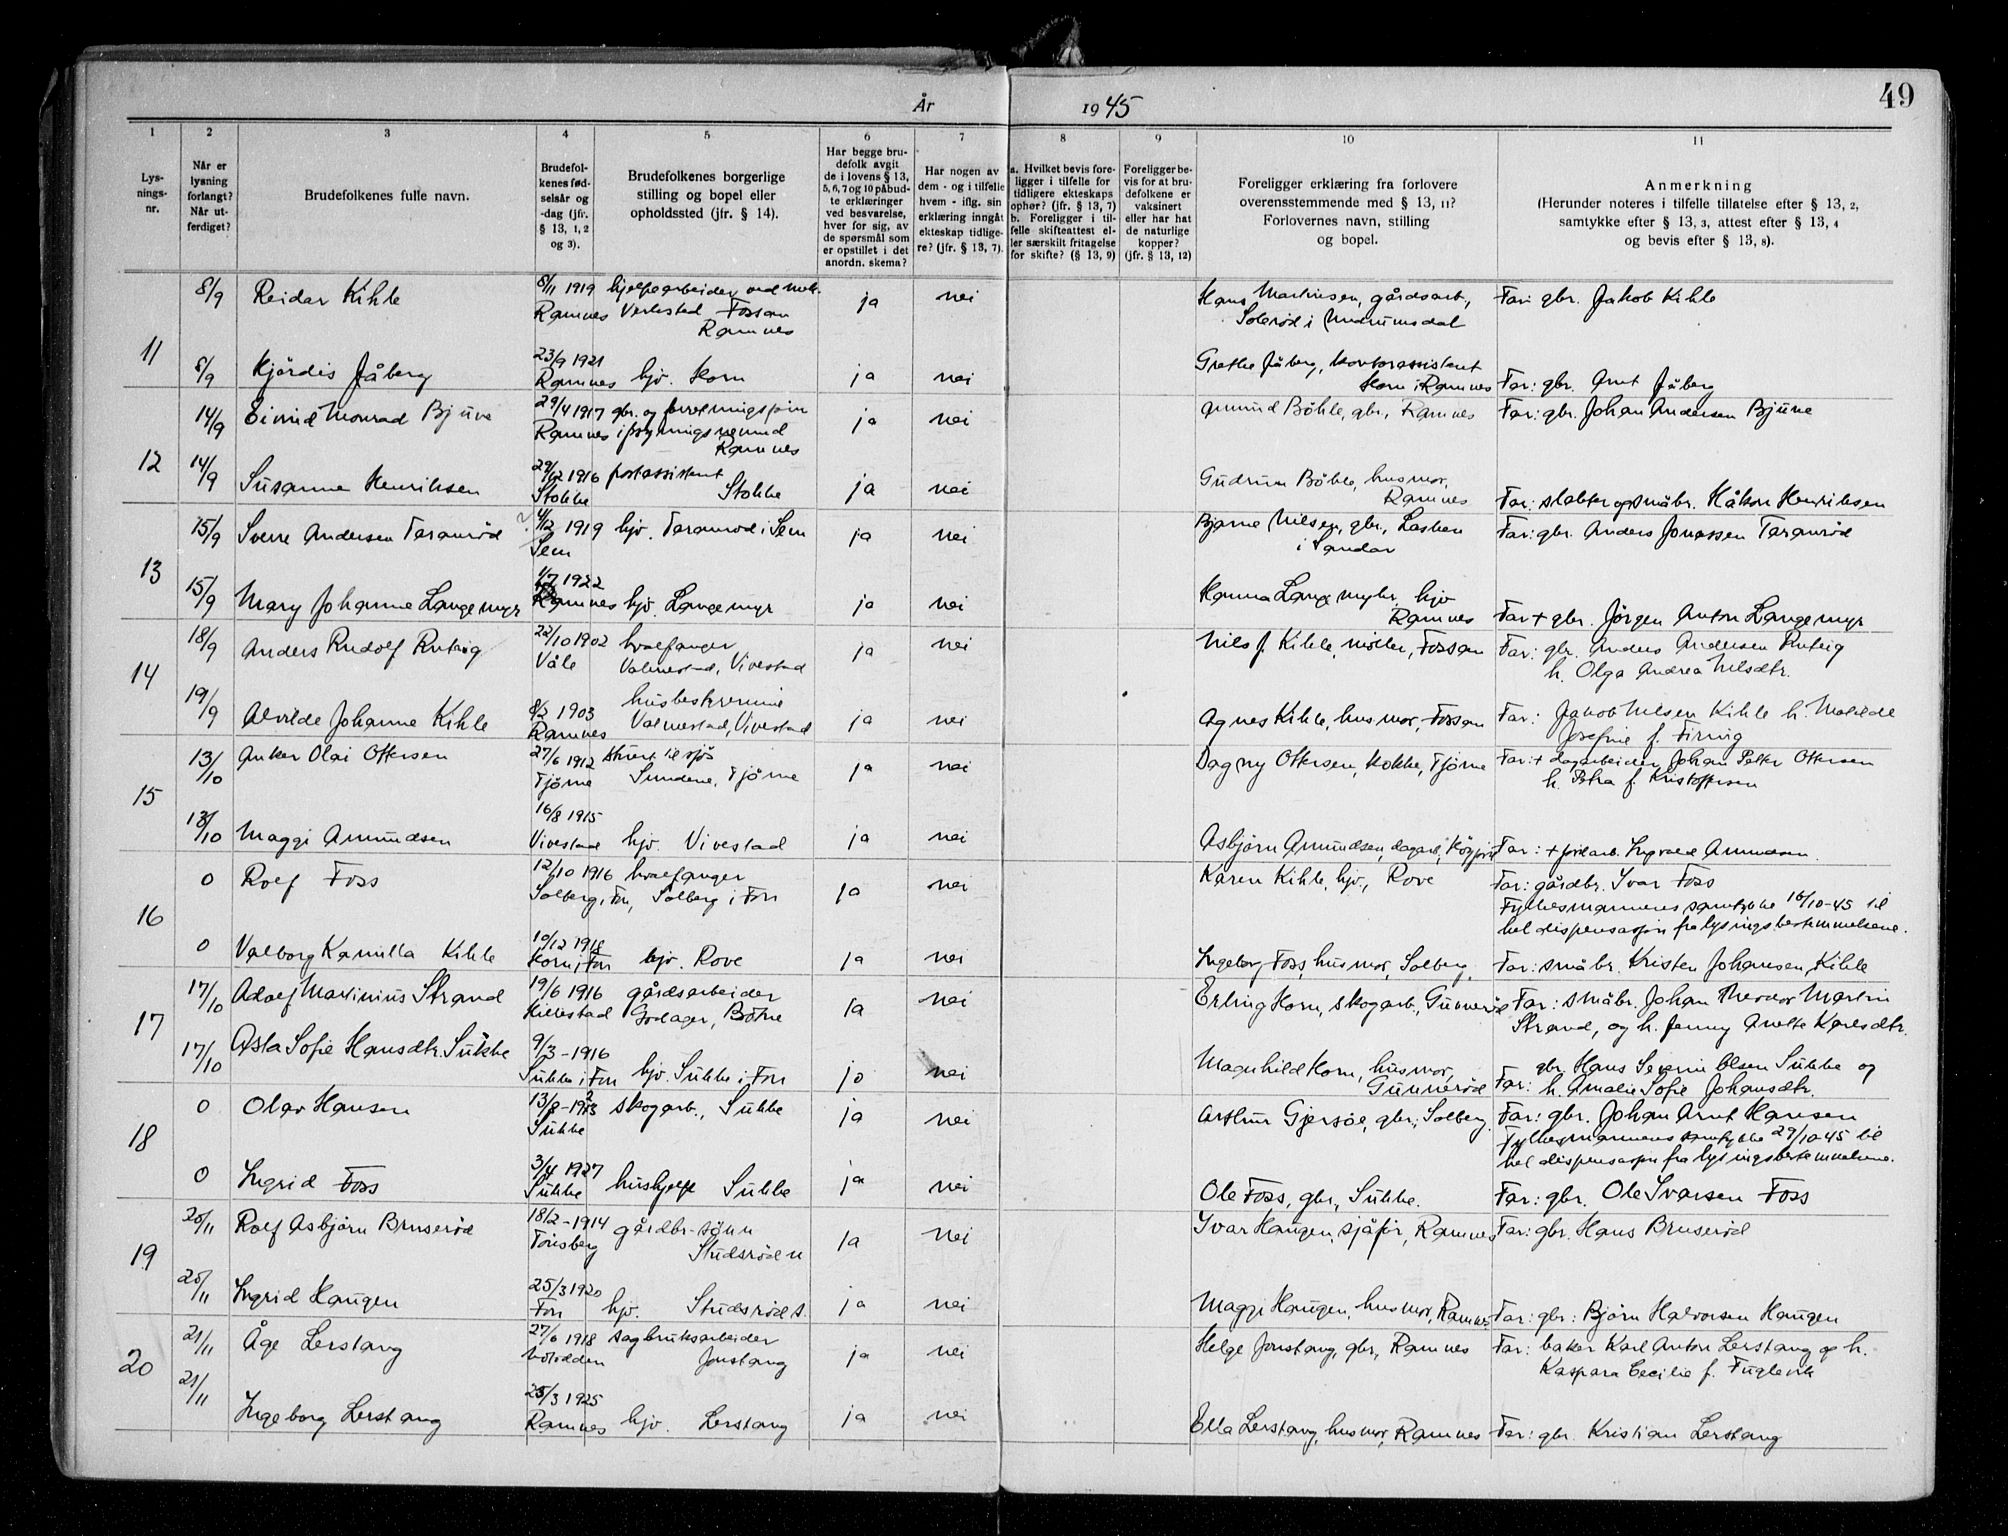 49
År 1945
1 2 3 4 5 6 7 8 9 10 11
Lys-
nings-
nr.
Når er
lysning
forlangt?
Når ut-
ferdiget?
Brudefolkenes fulle navn.
Brudefol-
kenes fød-
selsår og
-dag (jfr.
§ 13, 1, 2
og 3).
Brudefolkenes borgerlige
stilling og bopel eller
opholdssted (jfr. § 14).
Har begge bru-
defolk avgit
de i lovens § 13,
5, 6, 7 og 10 påbud-
te erklæringer
ved besvarelse,
hver for sig, av
de spørsmål som
er opstillet i det
anordn. skema?
Har nogen av
dem - og i tilfelle
hvem - iflg. sin
erklæring inngått
ekteskap tidlige-
re? (jfr. § 13, 7).
a. Hvilket bevis fore-
ligger i tilfelle for
tidligere ekteskaps
ophør? (jfr. § 13, 7)
b. Foreligger i til-
felle skifteattest el-
ler særskilt fritagelse
for skifte? (§ 13, 9)
Foreligger be-
vis for at bru-
defolkene er
vaksinert
eller har hat
de naturlige
kopper?
(jfr. § 13, 12)
Foreligger erklæring fra forlovere
overensstemmende med § 13, 11?
Forlovernes navn, stilling
og bopel.
Anmerkning
(Herunder noteres i tilfelle tillatelse efter § 13, 2,
samtykke efter § 13, 3, attest efter § 13, 4
og bevis efter § 13, 8).
8/9 Reidar Kihle 8/11 1919 hjelpearbeider ved mek. ja nei Hans Martinsen, gårdsarb., Far: gbr. Jakob Kihle
Ramnes Verksted Fossan Solerød i Undrumsdal
Ramnes
11
8/9 Hjørdis Jåberg 23/9 1921 ja nei Grethe Jåberg, kontorassistent
Ramnes hjv. Horn Horn i Ramnes Far: gbr. Arnt Jåberg
14/9 Eivind Monrad Bjune 29/4 1917 gbr. og forretningsfører ja nei Amund Bøhle, gbr., Ramnes Far: gbr. Johan Andersen Bjune
Ramnes i forsyningsnemnd
Ramnes
12
14/9 Susanne Henriksen 29/12 1916 postassistent ja nei Gudrun Bøhle, husmor,
Stokke Stokke Ramnes Far: slakter og småbr. Håkon Henriksen
15/9 Sverre Andersen Taranrød ? 4/12 1919 hjv. Taranrød i Sem ja nei Bjarne Nilsen, gbr., Lasken Far: gbr. Anders Jonassen Taranrød
Sem i Sandar
13
15/9 Mary Johanne Langemyr 1/7 1922 ja nei Hanna Langemyhr, hjv
Ramnes hjv. Langemyr Ramnes Far + gbr. Jørgen Anton Langemyr
18/9 Anders Rudolf Rutrig 22/10 1902 hvalfanger ja nei Nils J. Kihle, møller, Fossan Far: gbr. Anders Andersen Rutrig
Våle Valmestad, Vivestad h. Olga Andrea Nilsdtr.
14
19/9 Alvilde Johanne Kihle 8/2 1903 husbestyrerinne ja nei Agnes Kihle, husmor, Fossan Far: Jakob Nilsen Kihle h. Matilde
Ramnes Valmestad, Vivestad Josefine f. Firing
13/10 Anker Olai Ottersen 27/6 1912 stuert til sjøs ja nei Dagny Ottersen, kokke, Tjøme Far: + dagarbeider Johan Petter Ottersen
Tjøme Sundene, Tjøme h. Petra f. Kristoffersen
15
13/10 Maggi Amundsen 16/8 1915 ja nei Asbjørn Amundsen, dagarb.,
Vivestad hjv. Vivestad Far: + jordarb. Ingvald Amundsen.
0 Rolf Foss 12/10 1916 hvalfanger ja nei Karen Kihle, hjv., Rove Far: gårdbr. Ivar Foss
Solberg i Fon, Solberg i Fon Fylkesmannens samtykke 16/10-45 til
hel dispensasjon fra lysningsbestemmelsene.
16
0 Valborg Kamilla Kihle 10/12 1918 ja nei Ingeborg Foss, husmor, Solberg, Far: småbr. Kristen Johansen Kihle
Horn i Fon hjv. Rove
17/10 Adolf Martinius Strand 19/6 1916 gårdsarbeider ja nei Erling Horn, skogarb., Gunnerød Far: småbr. Johan Theodor Martin
Hillestad Godager, Botne Strand, og h. Jenny Anette Karlsdtr.
17
17/10 Asta Sofie Hansdtr. Sukke 9/3 - 1916 ja nei Magnhild Horn, husmor, gbr. Hans Severin Olsen Sukke og
Sukke i Fon hjv. Sukke i Fon Gunnerød Far: h. Amalie Sofie Johansdtr.
0 Olav Hansen 13/8 - 19 skogarb., Sukke ja nei Arthur Gjersøe, gbr., Solberg. Far: gbr. Johan Arnt Hansen
Sukke Fylkesmannens samtykke 29/10-45 til
hel dispensasjon fra lysningsbestemmelsene.
18
0 Ingrid Foss 3/4 1927 ja nei Ole Foss, gbr., Sukke. Far: gbr. Ole Ivarsen Foss
Sukke hushjelp Sukke
20/11 Rolf Asbjørn Bruserød 18/2 - 1914 gårdbr.-sønn ja nei Ivar Haugen, sjåfør, Ramnes Far: gbr. Hans Bruserød
Tønsberg Studsrød n
19
20/11 Ingrid Haugen 25/3 1920 ja nei Maggi Haugen, husmor, Ramnes Far: gbr: Bjørn Halvorsen Haugen
Fon hjv. Studsrød s.
21/11 Åge Lerstang 27/6 1918 sagbruksarbeider ja nei Helge Jonstang, gbr., Ramnes Far: baker Karl Anton Lerstang og h.
Notodden Jonstang Kaspara Cecilie f. Fuglevik
20
21/11 Ingeborg Lerstang 25/3 1925 ja nei Ella Lerstang, husmor, Ramnes Far: gbr. Kristian Lerstang
Ramnes hjv. Lerstang